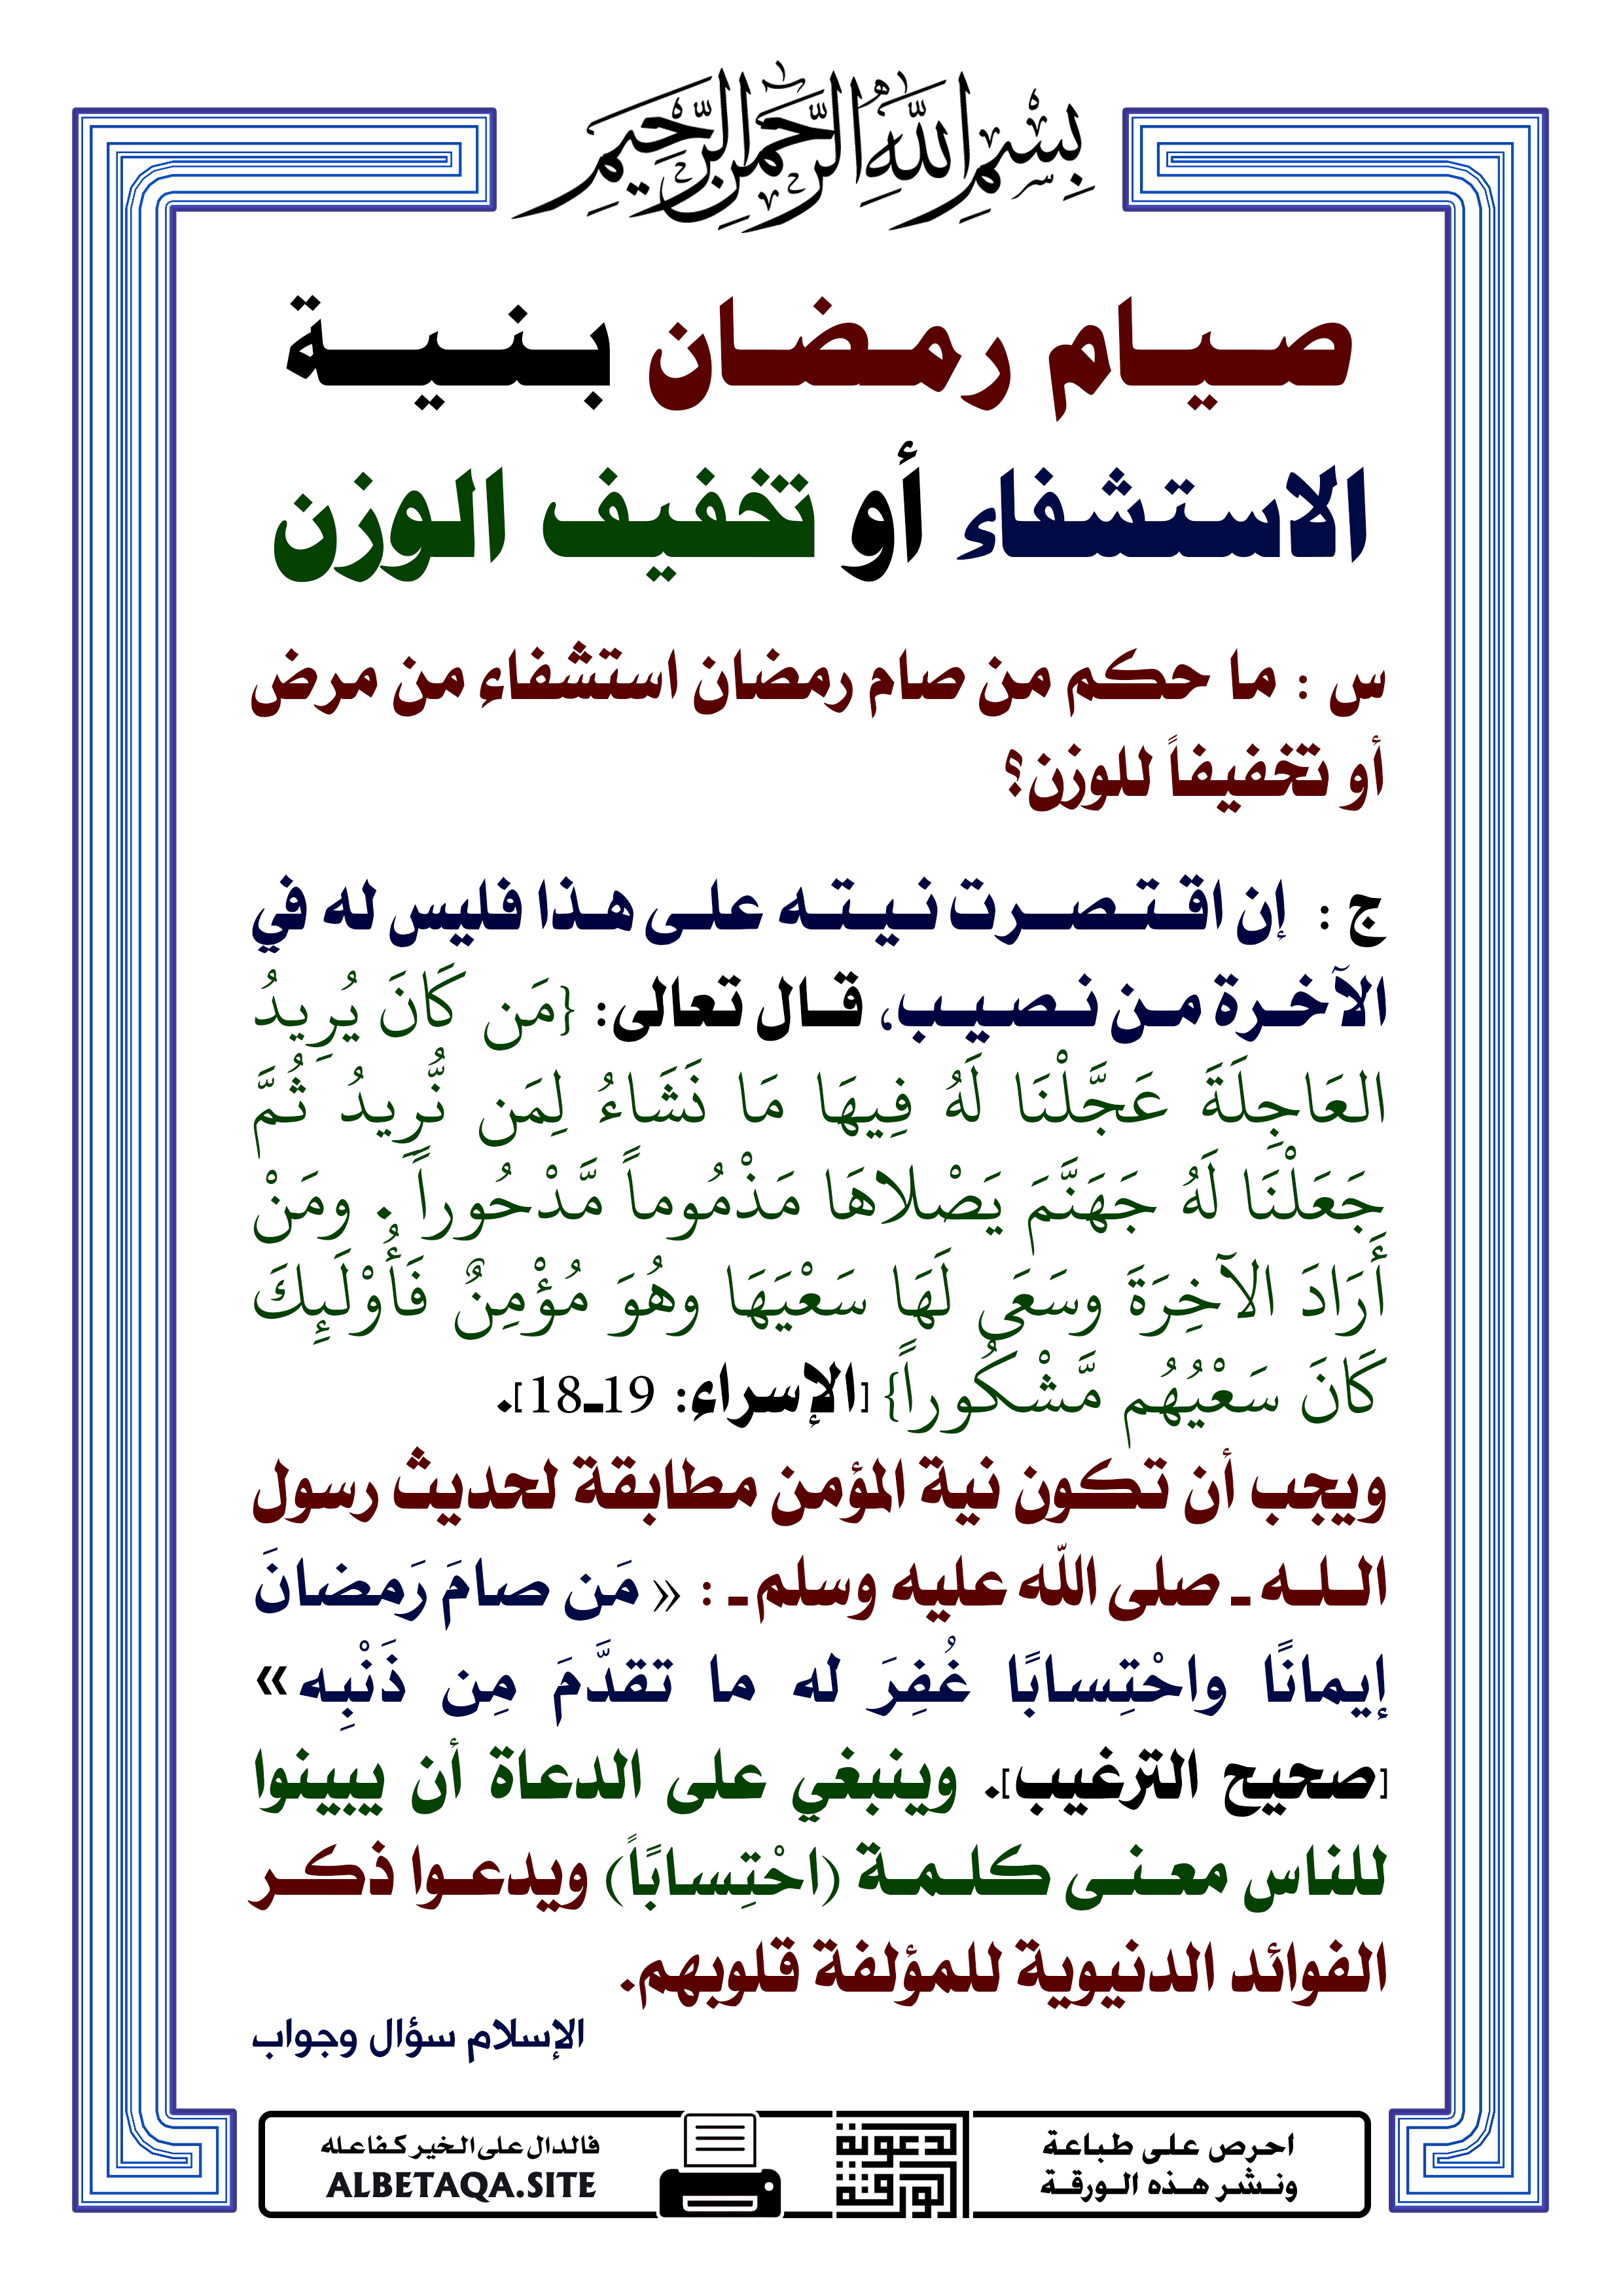 بِسْمِ اللَّهِ الرَّحْمَٰنِ الرَّحِيمِ
صيام رمضان بنية
الاستشفاء أو تخفيف الوزن
س : ما حكم من صام رمضان استشفاءٍ من مرض
أو تخفيفاً للوزن؟
ج : إن اقتصرت نيته على هذا فليس له في
الآخرة من نصيب، قال تعالى: {مَن كَانَ يُرِيدُ
العَاجِلَةَ عَجَّلْنَا لَهُ فِيهَا مَا نَشَاءُ لِمَن نُّرِيدُ ثُمَّ
جَعَلْنَا لَهُ جَهَنَّمَ يَصْلاهَا مَذْمُوماً مَّدْحُوراً . ومَنْ
أَرَادَ الآخِرَةَ وسَعَى لَهَا سَعْيَهَا وهُوَ مُؤْمِنٌ فَأُوْلَئِكَ
كَانَ سَعْيُهُم مَّشْكُوراً} [الإسراء: 19ـ18].
ويجب أن تكون نية المؤمن مطابقة لحديث رسول
الله ـ صلى الله عليه وسلم ـ : « مَن صامَ رَمضانَ
إيمانًا واحْتِسابًا غُفِرَ له ما تقدَّمَ مِن ذَنْبِه »
[صحيح الترغيب]. وينبغي على الدعاة أن يبينوا
للناس معنى كلمة (احْتِسابًاً) ويدعوا ذكر
الفوائد الدنيوية للمؤلفة قلوبهم.
الإسلام سؤال وجواب
احرص على طباعة
ونشر هذه الورقة
الدعوية
الورقة
فالدال على الخير كفاعله
ALBETAQA.SITE